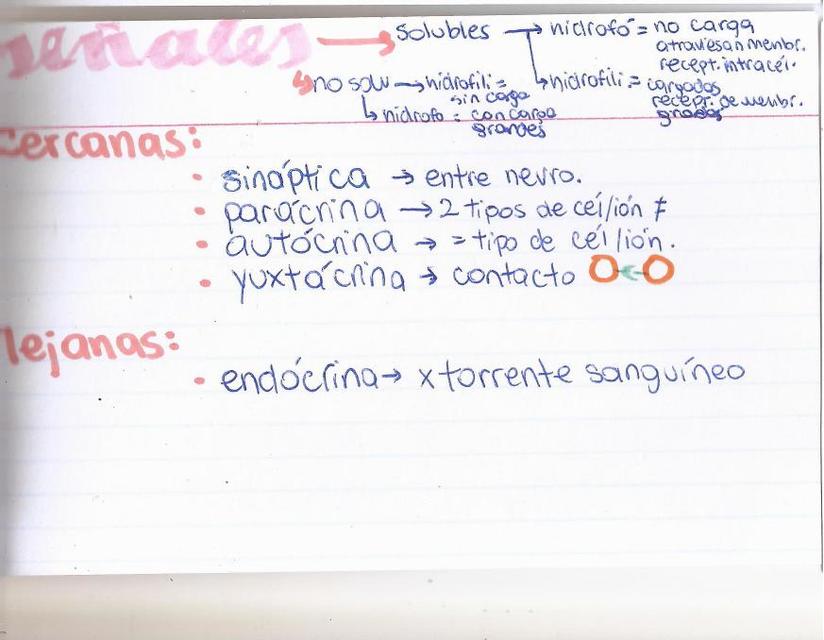 señales → solubles → hidrofó = no carga
atraviesan membr.
recept. intracél.
↳ hidrofili = cargados
recepr. de membr.
grandes
↳ no solu → hidrofili =
sin carga
↳ hidrofo = con carga
grandes
cercanas:
• sináptica → entre neuro.
• parácrina → 2 tipos de cél/ión ≠
• autócrina → = tipo de cél/ión.
• yuxtácrina → contacto
lejanas:
• endócrina → x torrente sanguíneo